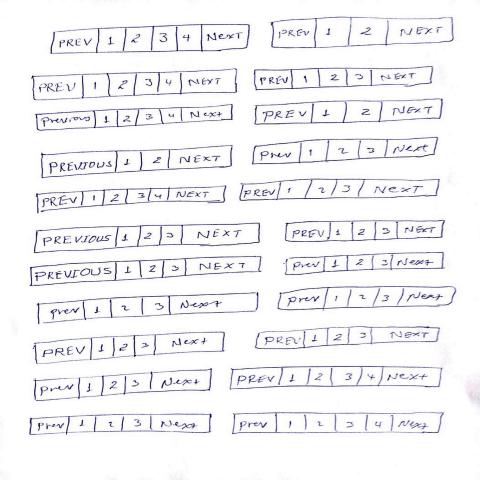 PREV 1 2 3 4 Next
PREV 1 2 NEXT
PREV 1 2 3 4 NEXT
PREV 1 2 3 NEXT
Previous 1 2 3 4 Next
PREV 1 2 NEXT
PREVIOUS 1 2 NEXT
Prev 1 2 3 Next
PREV 1 2 3 4 NEXT
PREV 1 2 3 NEXT
PREVIOUS 1 2 3 NEXT
PREV 1 2 3 NEXT
PREVIOUS 1 2 3 NEXT
PREV 1 2 3 Next
Prev 1 2 3 Next
Prev 1 2 3 Next
PREV 1 2 3 Next
PREV 1 2 3 NEXT
Prev 1 2 3 Next
PREV 1 2 3 4 Next
Prev 1 2 3 Next
Prev 1 2 3 4 Next